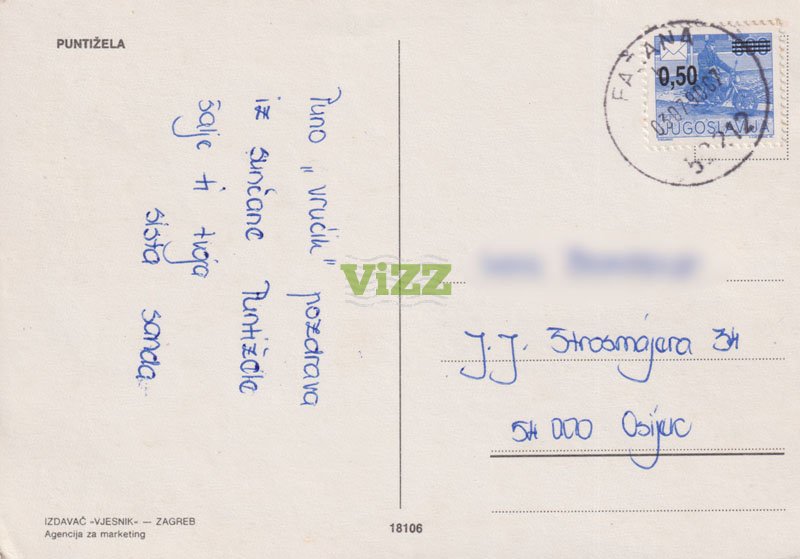 PUNTIŽELA
Puno „vrućih" pozdrava
iz sunčane Puntižele
šalje ti tvoja
sista sanda
ViZZ
FAŽANA
0,50
JUGOSLAVIJA
52212
J.J. Strosmajera 34
54 000 Osijek
IZDAVAČ »VJESNIK« — ZAGREB
Agencija za marketing
18106